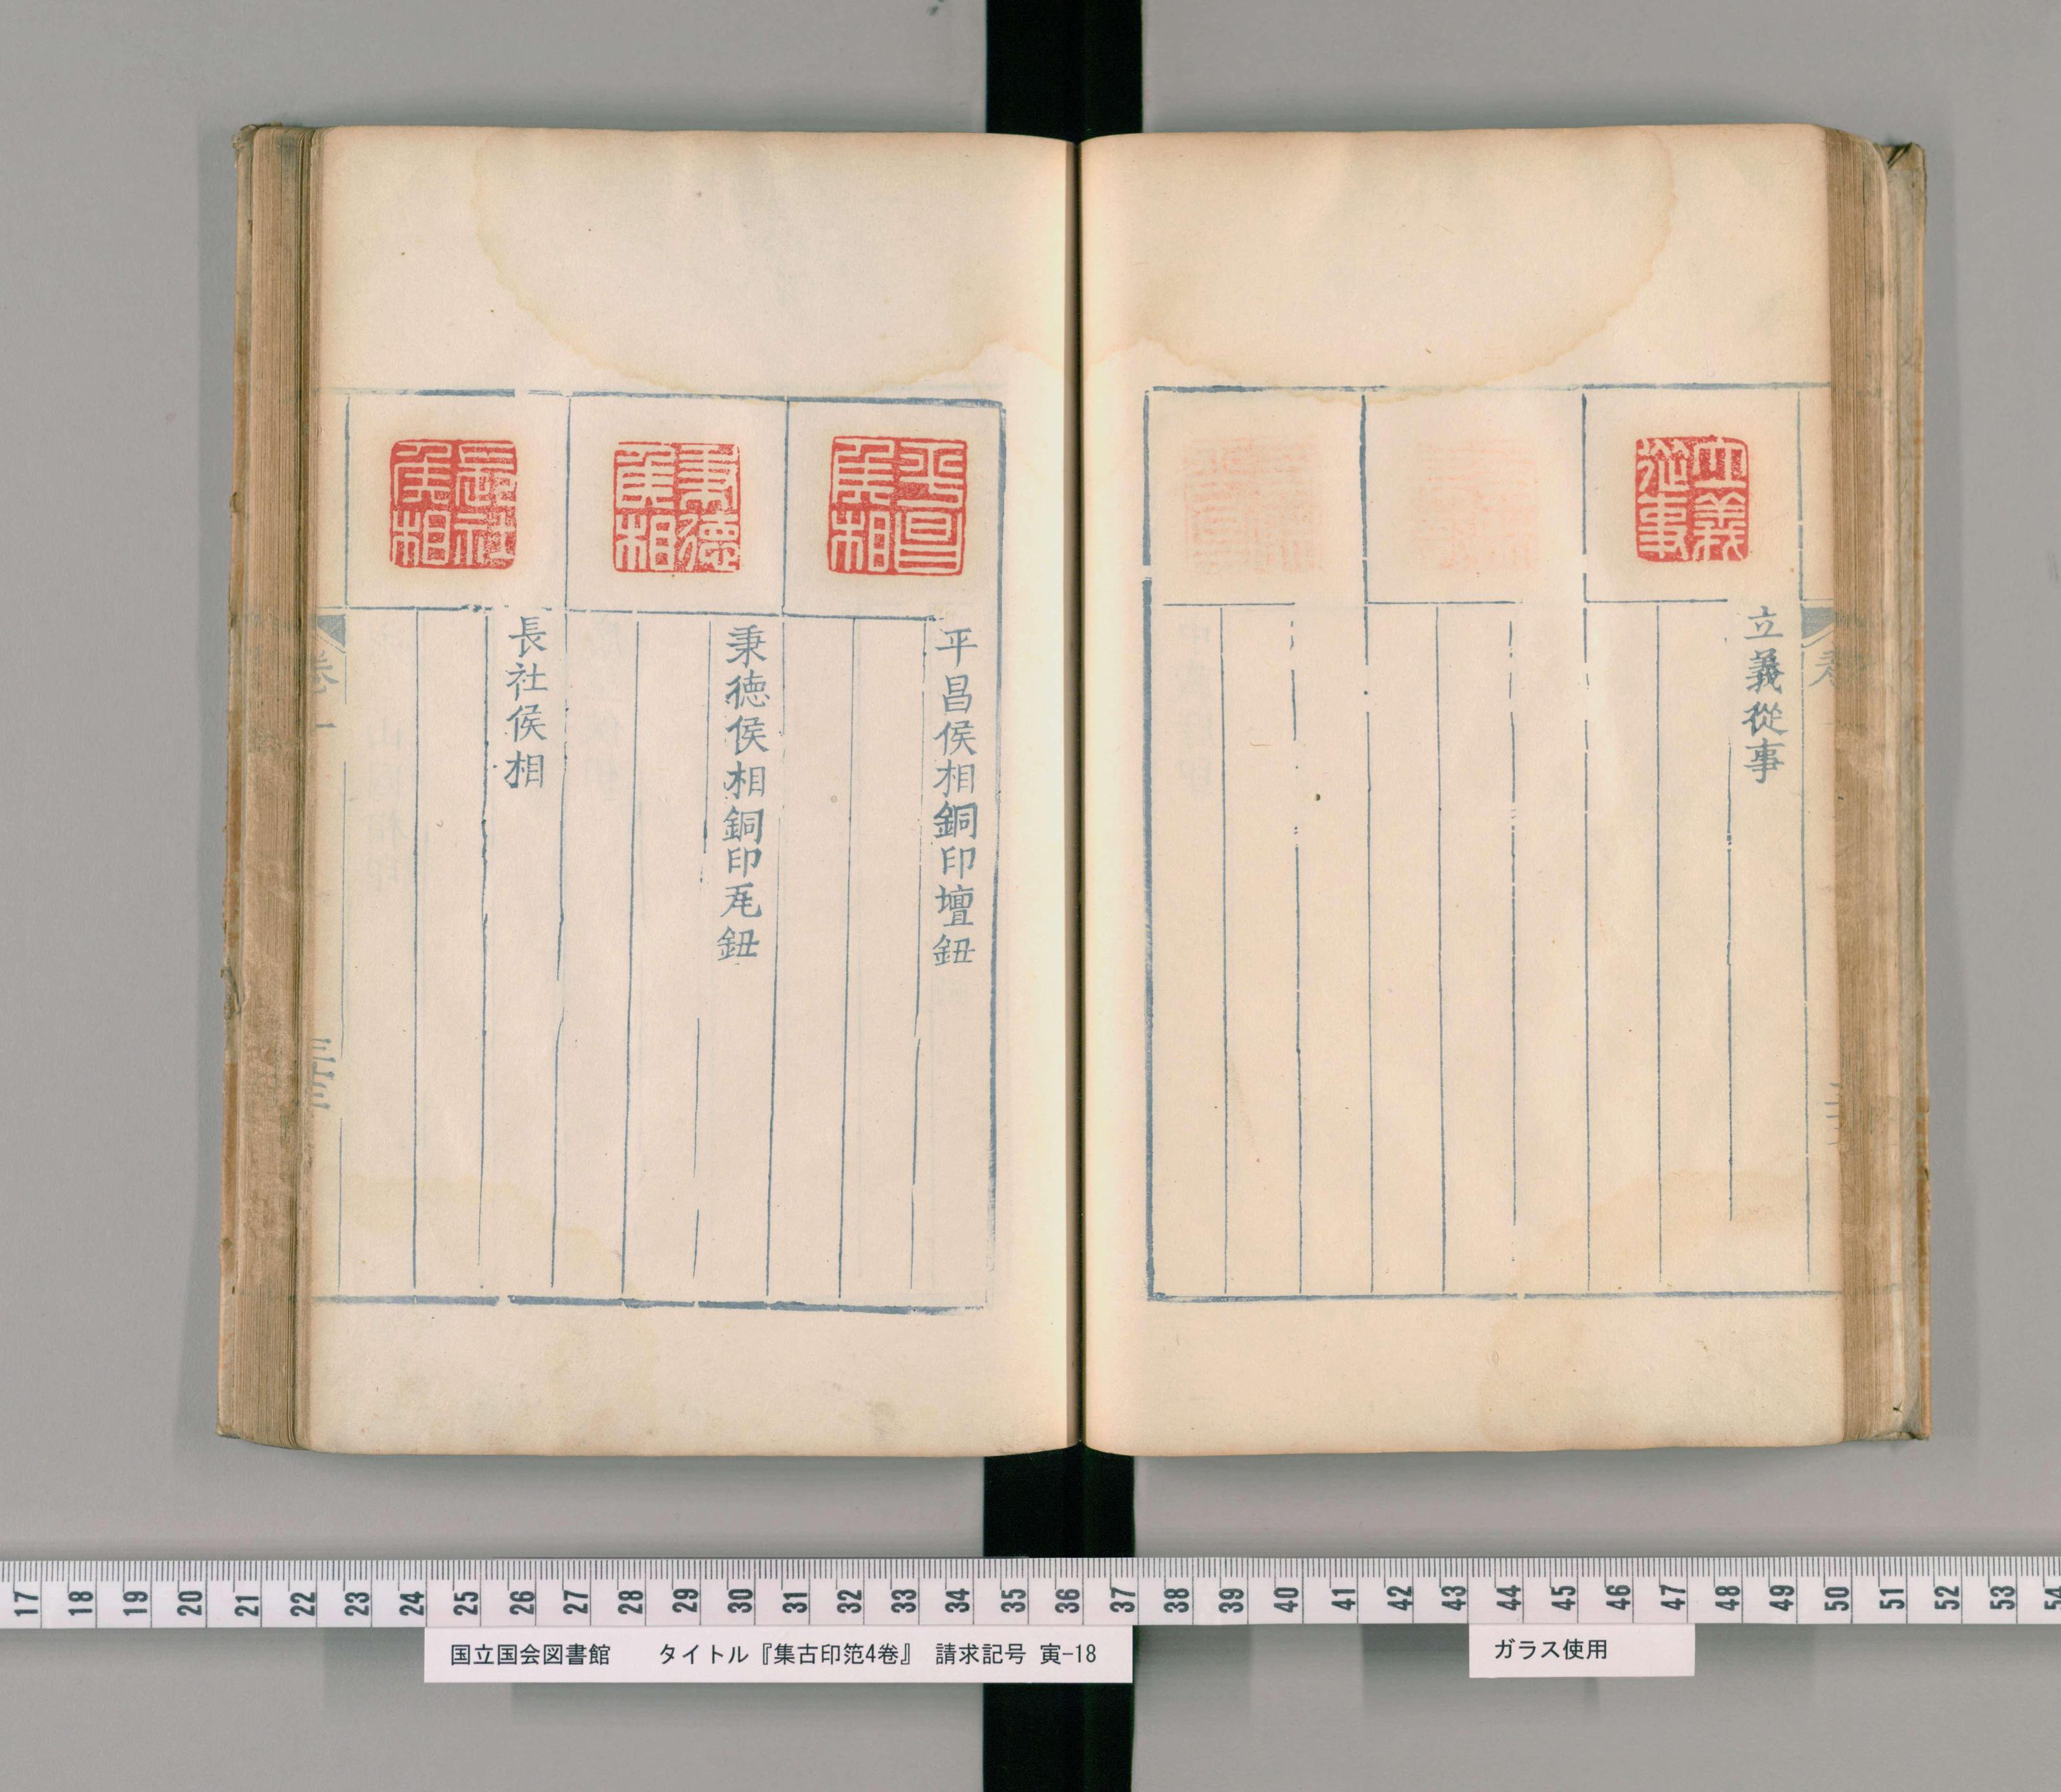 立義從事
立義從事
平昌侯相
平昌侯相銅印壇鈕
秉德侯相
秉徳侯相銅印𤓰鈕
長社侯相
長社侯相
卷一
三十三
17 18 19 20 21 22 23 24 25 26 27 28 29 30 31 32 33 34 35 36 37 38 39 40 41 42 43 44 45 46 47 48 49 50 51 52 53 54
国立国会図書館 タイトル『集古印笵4巻』 請求記号 寅-18
ガラス使用